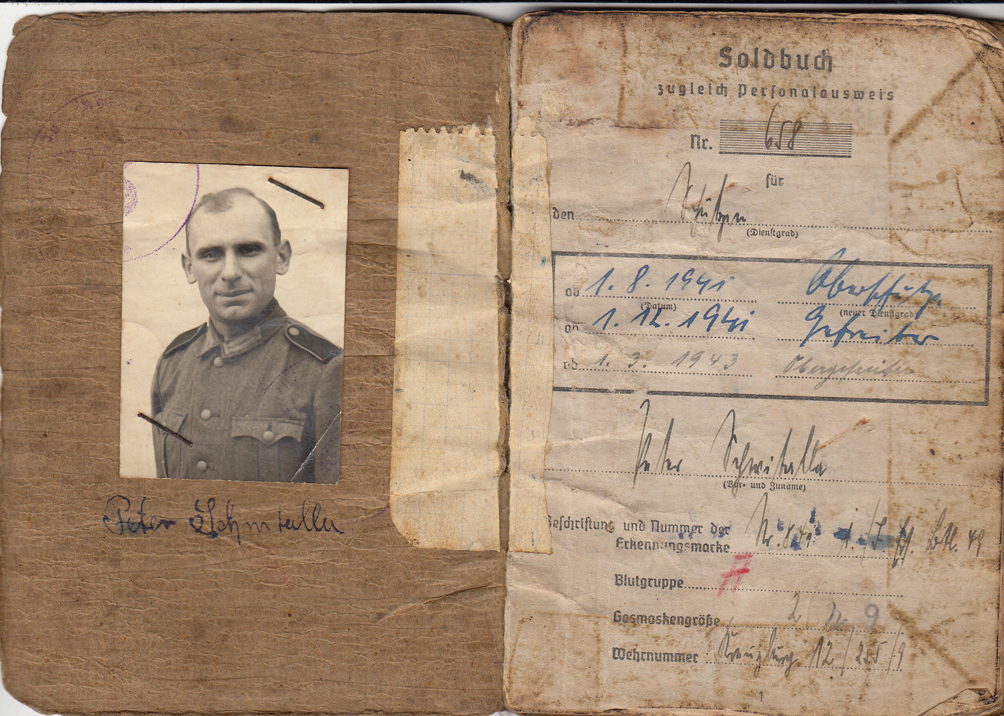 Peter Schwitalla
Soldbuch
zugleich Personalausweis
Nr. 658
für
den Schützen
(Dienstgrad)
ab 1. 8. 1941 Oberschütze
(Datum) (neuer Dienstgrad)
ab 1. 12. 1941 Gefreiter
ab 1. 3. 1943 Obergefreiter
Peter Schwitalla
(Vor- und Zuname)
Beschriftung und Nummer der
Erkennungsmarke Nr. Btl. 49
Blutgruppe
Gasmaskengröße 2
Wehrnummer Kreuzburg 12/225/9
1